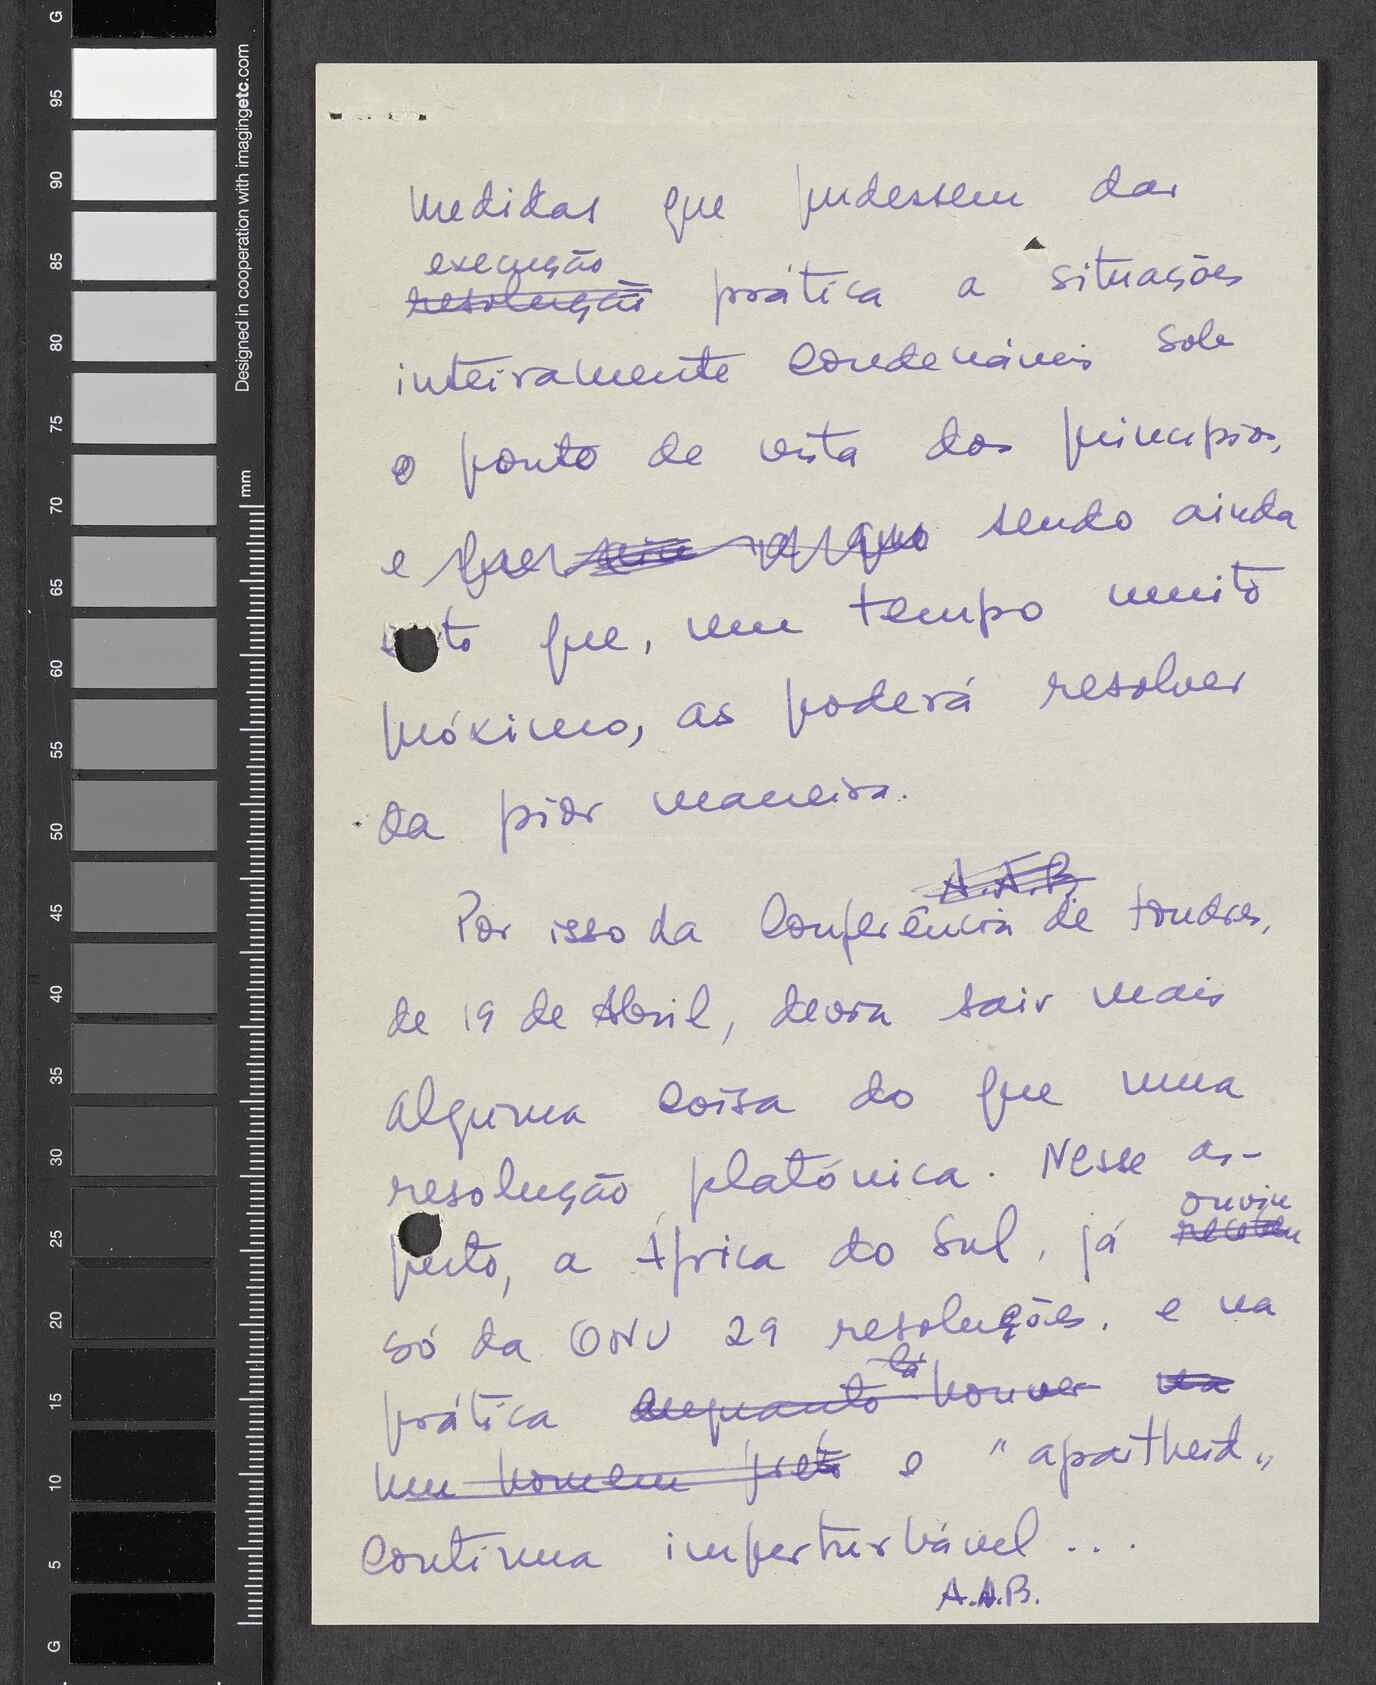 medidas que pudessem dar
execução
resolução prática a situações
inteiramente condenáveis sob
o ponto de vista dos principios,
e que sendo ainda
certo que, um tempo muito
próximo, as poderá resolver
da pior maneira.
A.A.B.
Por isso da Conferência de Londres,
de 19 de Abril, devia sair mais
alguma coisa do que uma
resolução platónica. Nesse as-
ouviu
pecto, a África do Sul, já recebeu
só da ONU 29 resoluções, e na
lá
prática enquanto houver na
um homem preto o "apartheid"
continua imperturbável...
A.A.B.
G
95
90
85
80
75
70
65
60
55
50
45
40
35
30
25
20
15
10
5
G
Designed in cooperation with imagingetc.com
mm